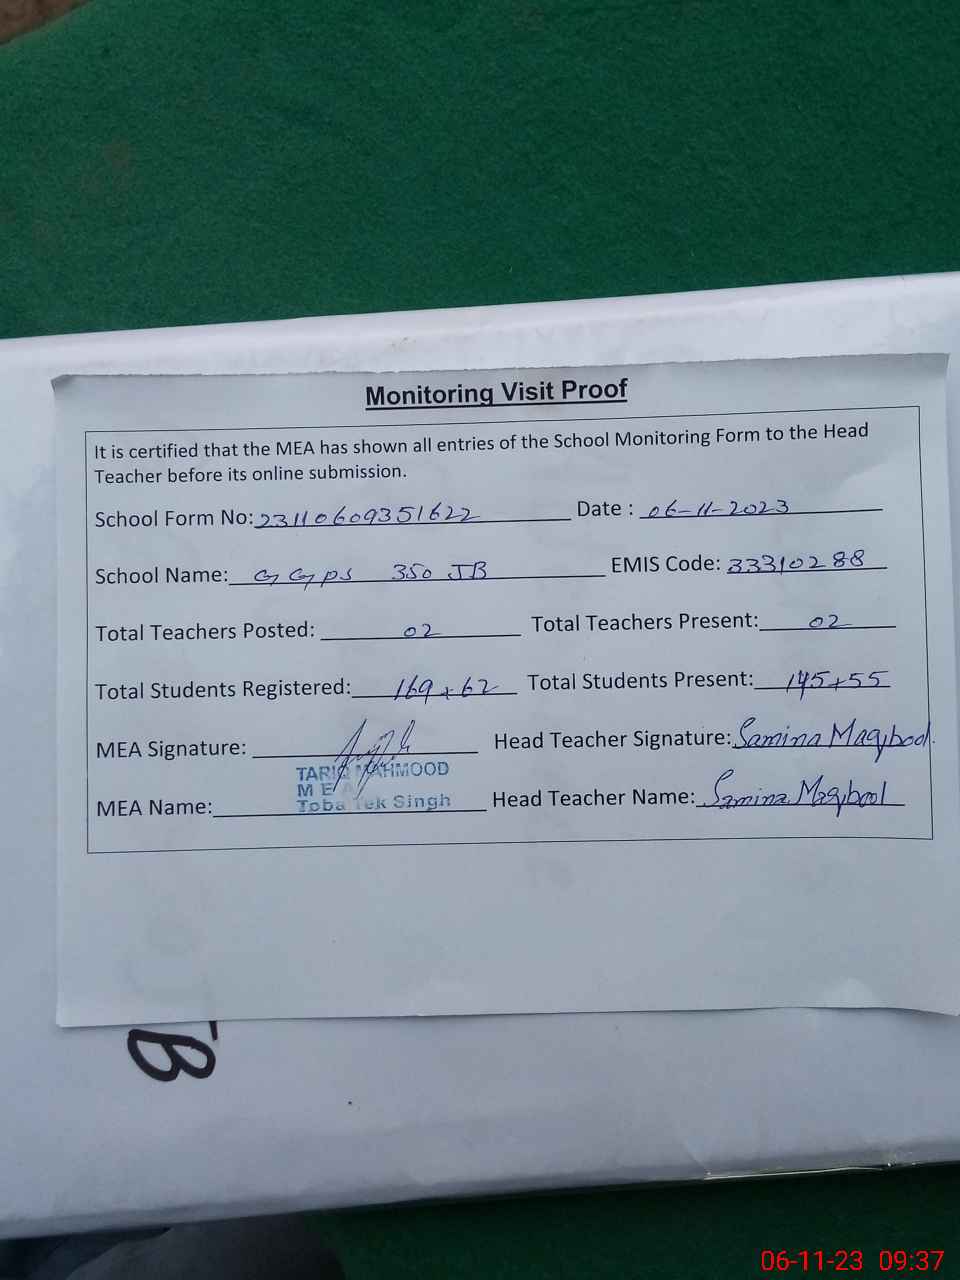 Monitoring Visit Proof
It is certified that the MEA has shown all entries of the School Monitoring Form to the Head
Teacher before its online submission.
School Form No: 23110609351622 Date : 06-11-2023
School Name: GGPS 350 JB EMIS Code: 33310288
Total Teachers Posted: 02 Total Teachers Present: 02
Total Students Registered: 169+62 Total Students Present: 145+55
MEA Signature: Head Teacher Signature: Samina Maqbool
TARIQ MAHMOOD
MEA
MEA Name: Toba Tek Singh Head Teacher Name: Samina Maqbool
B
06-11-23 09:37